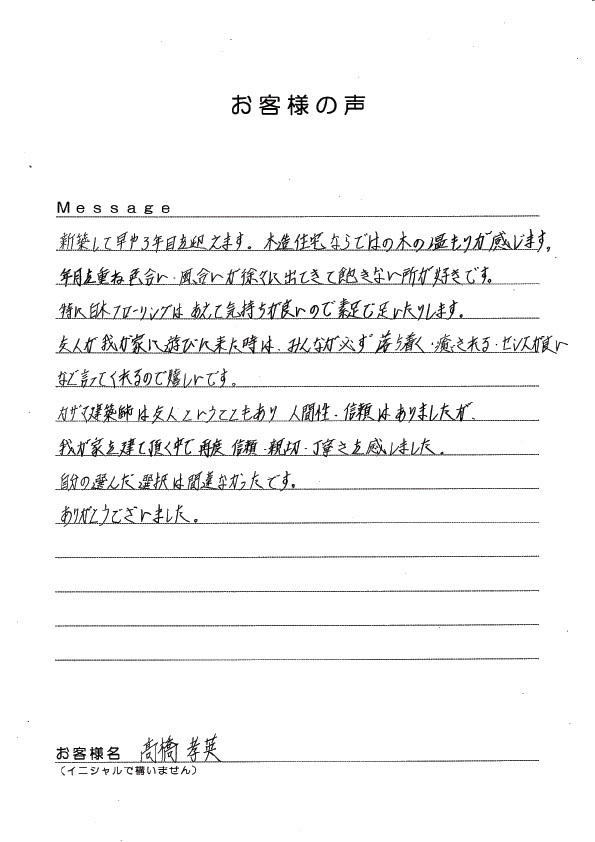 お客様の声
Message
新築して早や3年目を迎えます。木造住宅ならではの木の温もりが感じます。
年月を重ね色合い・風合いが徐々に出てきて飽きない所が好きです。
特に白木フローリングは あえて気持ちが良いので素足で足いたりします。
友人が我が家に遊びに来た時は、みんなが必ず 落ち着く・癒される・センスが良い
など言ってくれるので嬉しいです。
カザマ建築師は友人ということもあり 人間性・信頼はありましたが、
我が家を建て頂く中で 再度 信頼・親切・丁寧さを感じました。
自分の選んだ選択は間違なかったです。
ありがとうございました。
お客様名 髙橋 孝英
（イニシャルで構いません）